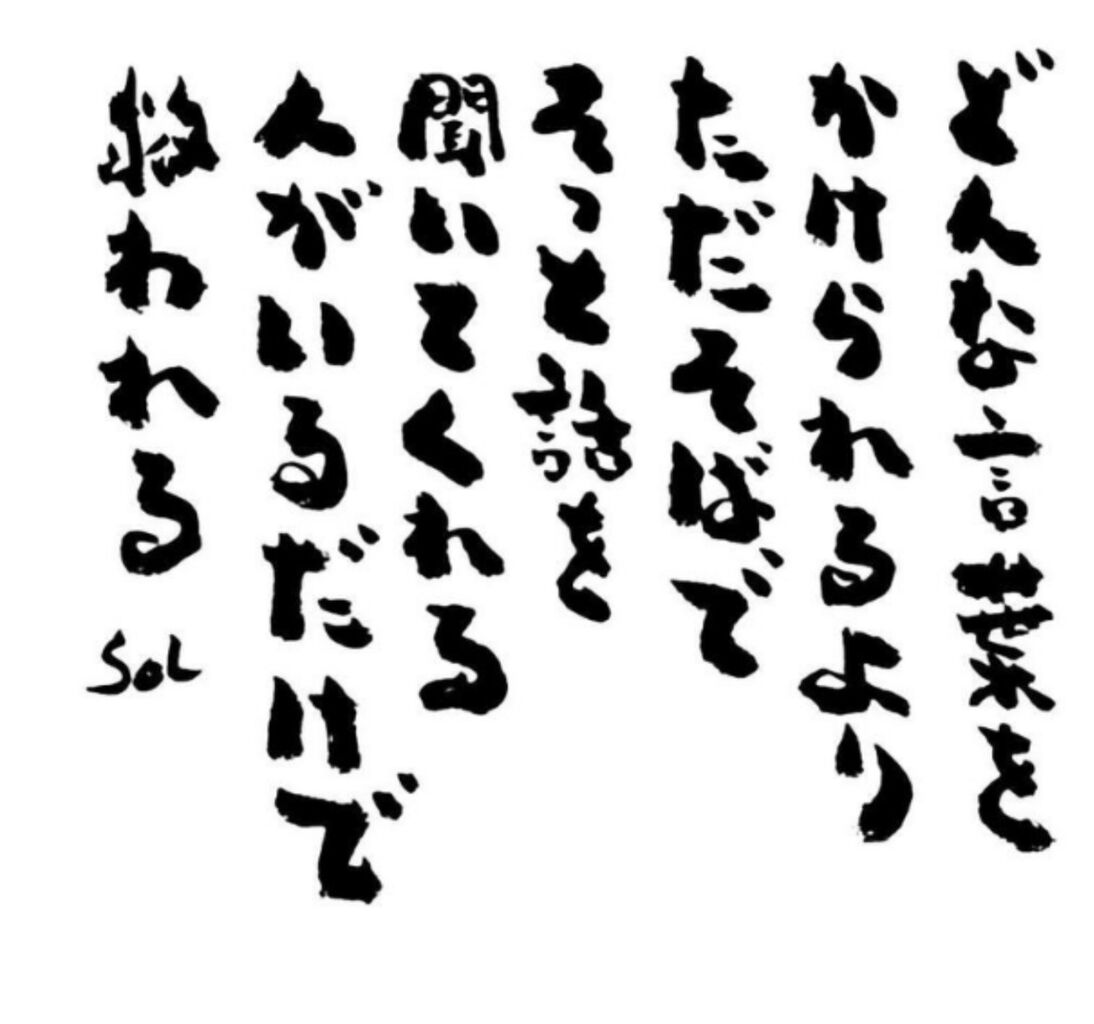 どんな言葉を
かけられるより
ただだそばで
そっと話を
聞いてくれる
人がいるだけで
救われる
SOL